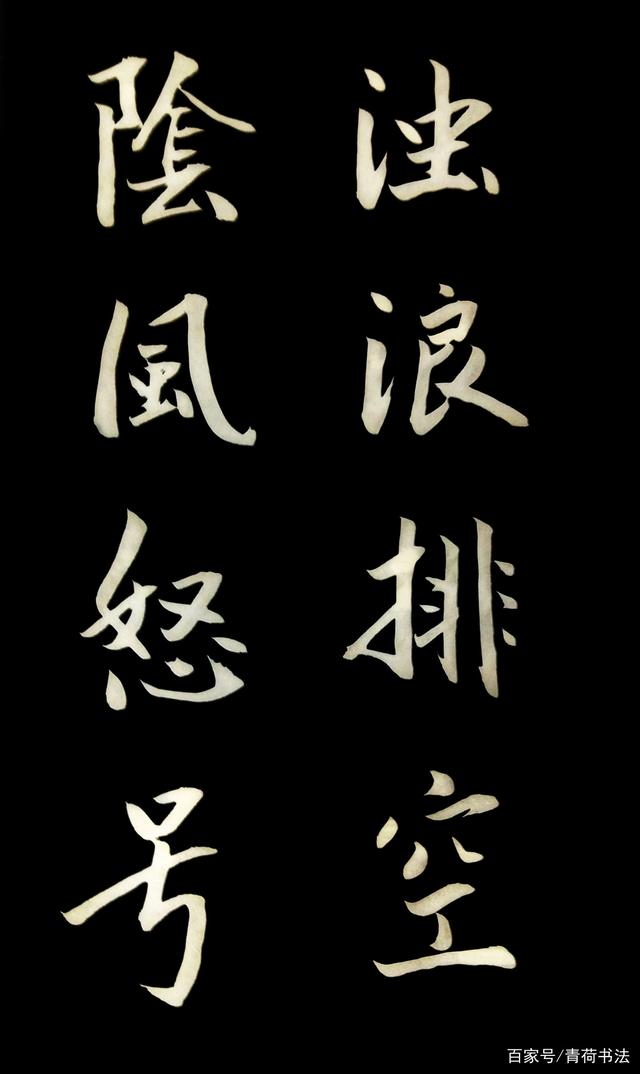 浊浪排空
陰風怒号
百家号/青荷书法